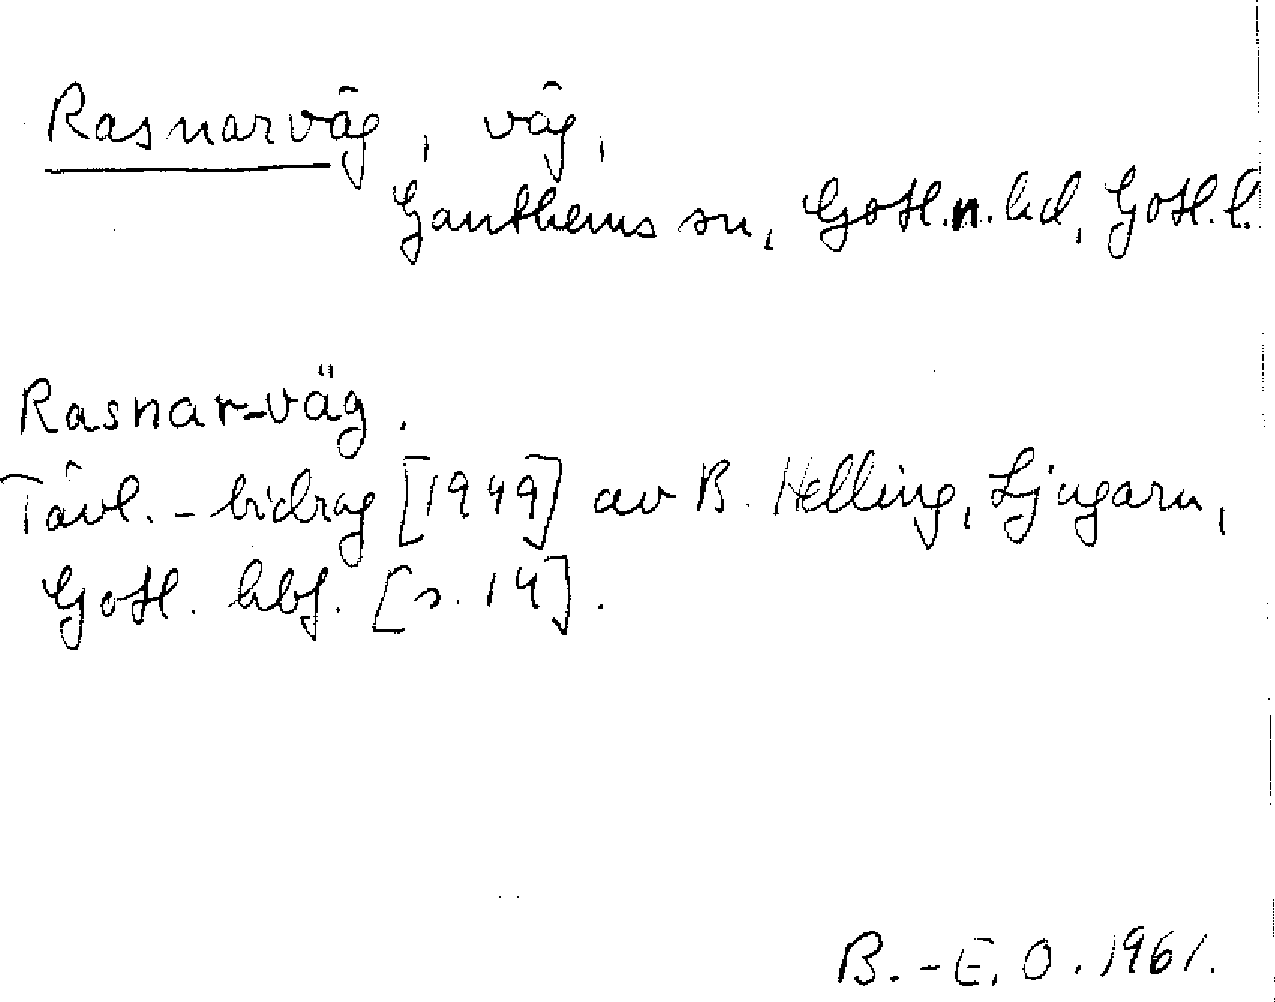 Rasnarväg, väg,
Ganthems sn, Gotl.n.hd, Gotl.l.
Rasnar-väg.
Tävl.-bidrag [1949] av B. Helling, Ljugarn,
Gotl. hbf. [s. 14].
B.-E. O. 1961.